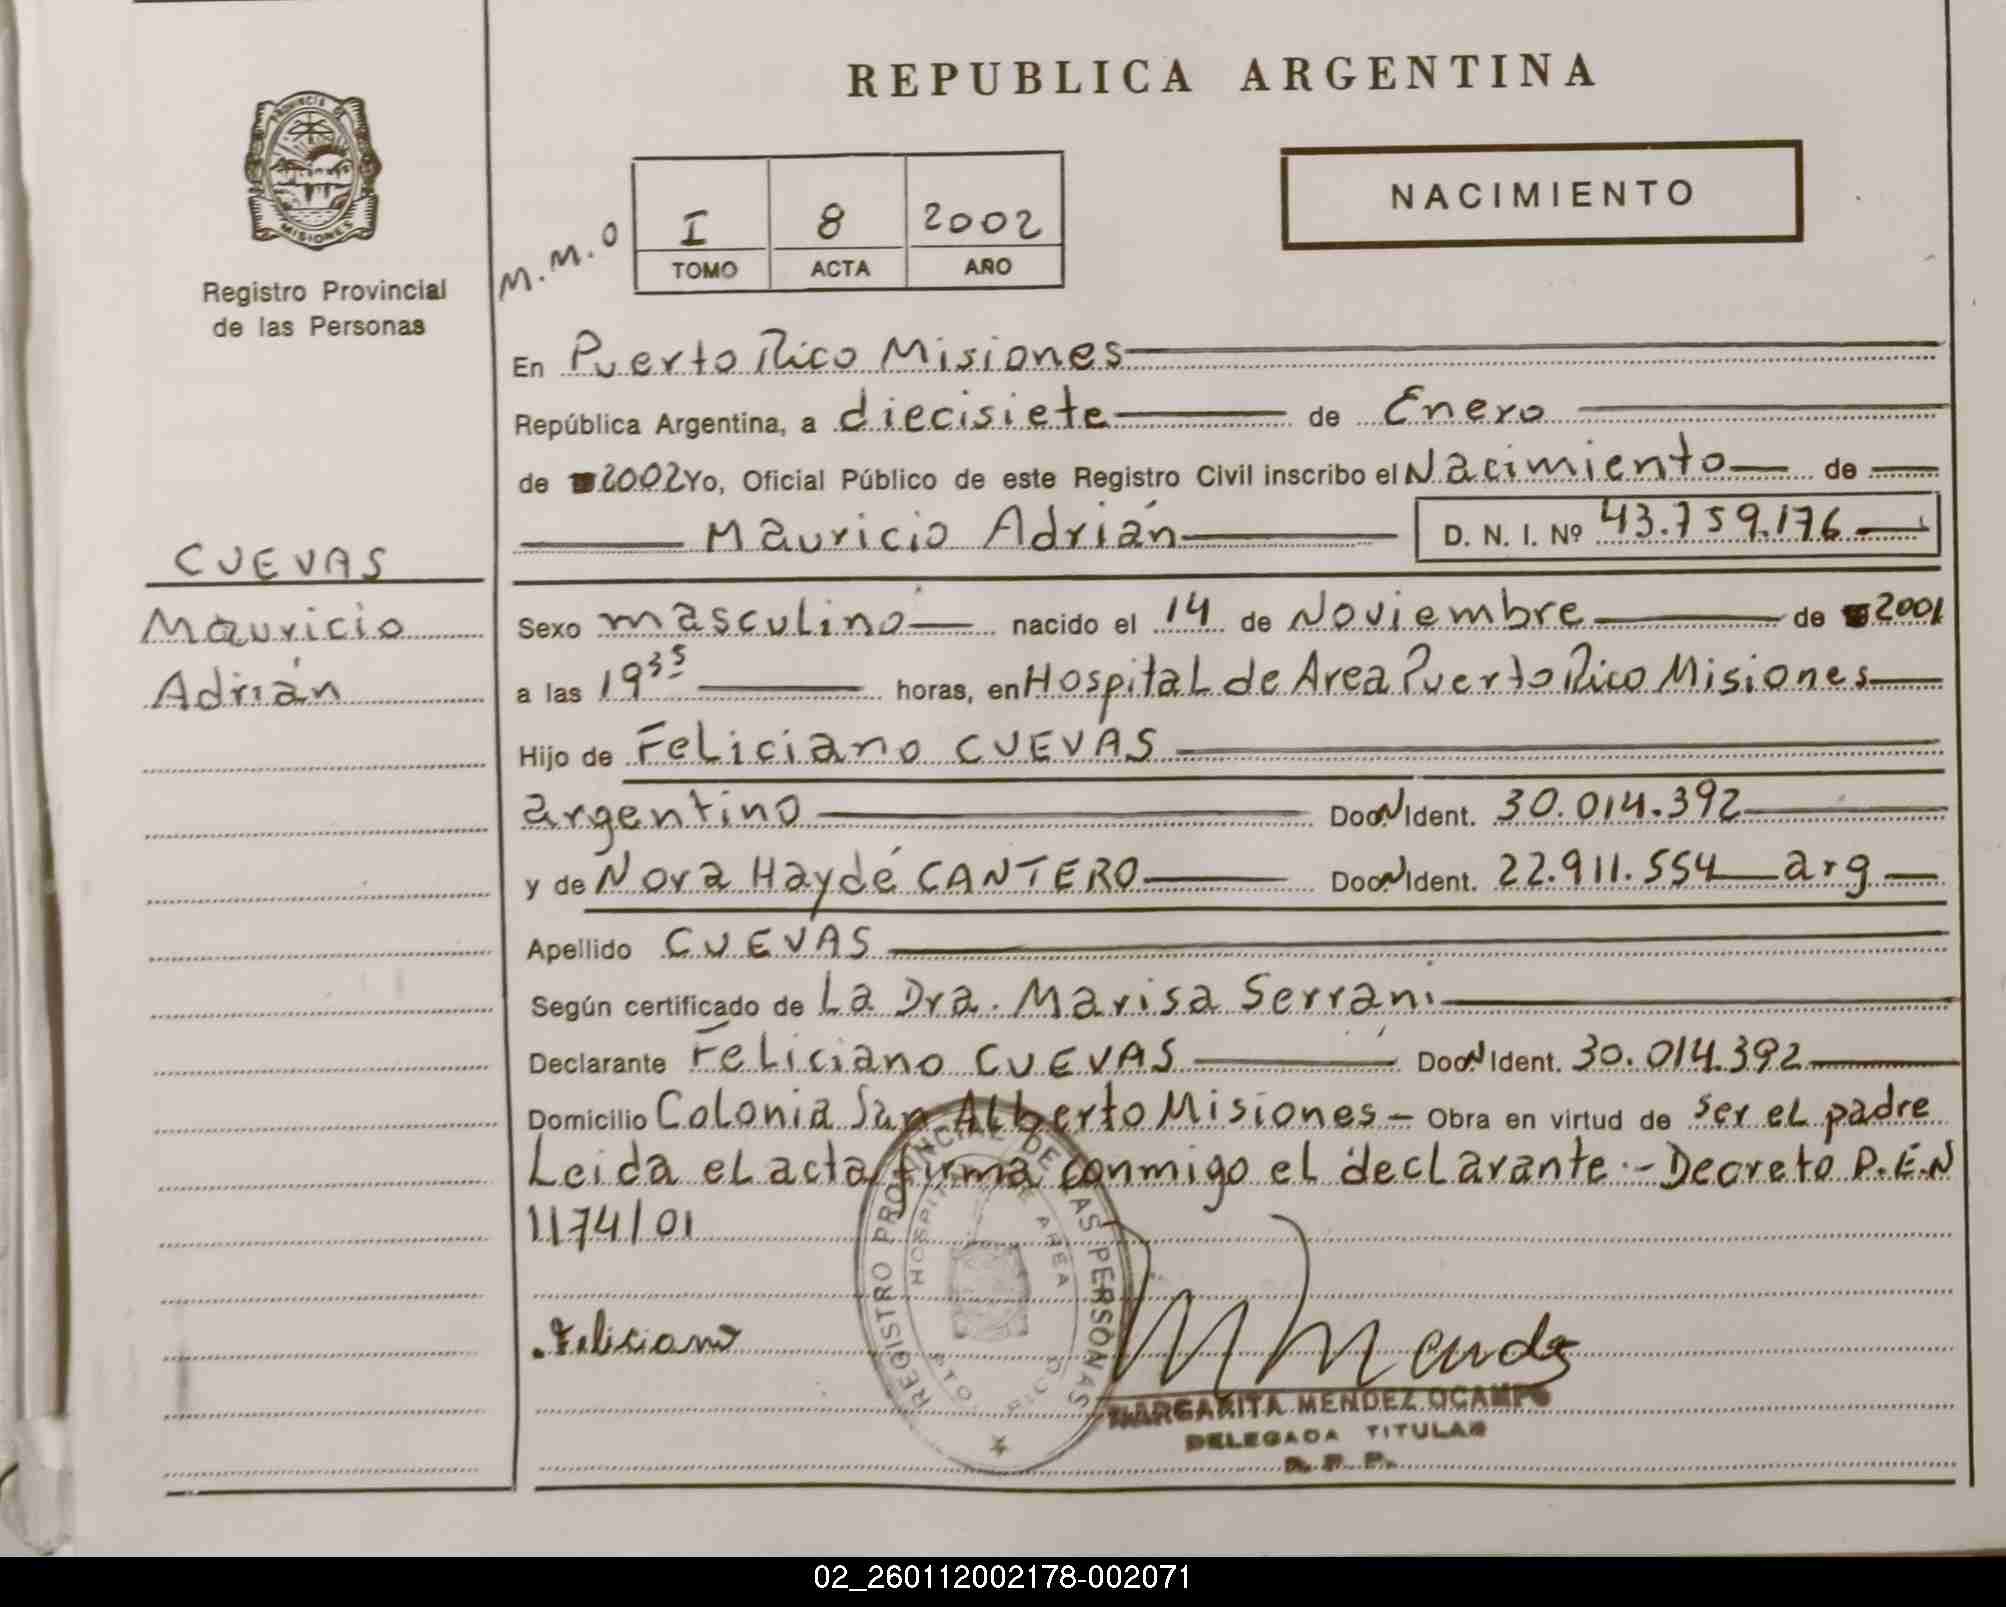 REPUBLICA ARGENTINA
PROVINCIA DE
MISIONES
Registro Provincial
de las Personas
NACIMIENTO
M.M.O
I 8 2002
TOMO ACTA AÑO
En Puerto Rico Misiones
República Argentina, a diecisiete de Enero
de 2002 Yo, Oficial Público de este Registro Civil inscribo el Nacimiento de
Mauricio Adrián D. N. I. Nº 43.759.176
CUEVAS
Mauricio
Adrián
Sexo masculino nacido el 14 de Noviembre de 2001
a las 19 35 horas, en Hospital de Area Puerto Rico Misiones
Hijo de Feliciano CUEVAS
argentino Doc. N Ident. 30.014.392
y de Nora Haydé CANTERO Doc. N Ident. 22.911.554 arg
Apellido CUEVAS
Según certificado de La Dra. Marisa Serrani
Declarante Feliciano CUEVAS Doc. N Ident. 30.014.392
Domicilio Colonia San Alberto Misiones - Obra en virtud de ser el padre
Leida el acta firma conmigo el declarante.- Decreto P.E.N
1174/01
REGISTRO PROVINCIAL DE LAS PERSONAS
HOSPITAL DE AREA
PTO. RICO
.Feliciano
M Mendez
MARGARITA MENDEZ OCAMPO
DELEGADA TITULAR
R. P. P.
02_260112002178-002071